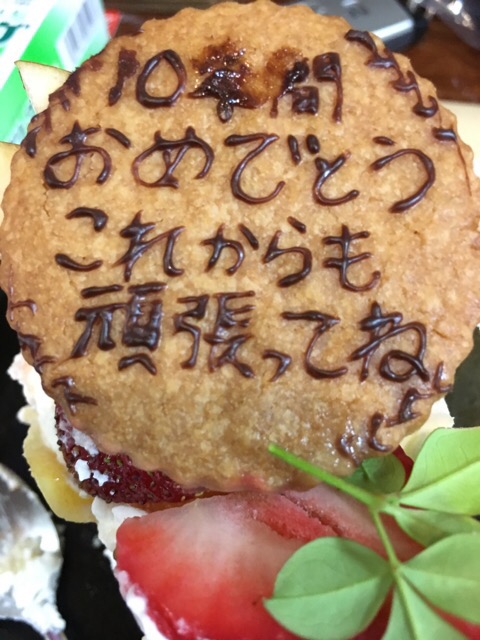 10年間
おめでとう
これからも
頑張ってね